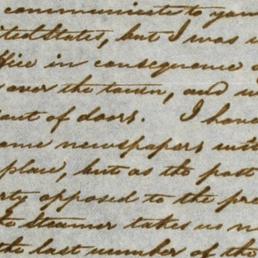 communicate to you
ited States, but I was
ffice in consequence
over the town, and
out of doors. I have
ome newspapers
place, but as the post
rty opposed to the pre
steamer takes us
the last number of the